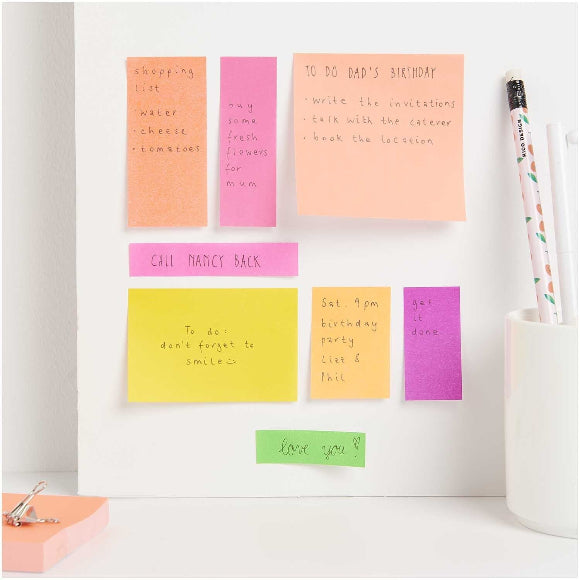 shopping
list
• water
• cheese
• tomatoes
buy
some
fresh
flowers
for
mum
TO DO DAD'S BIRTHDAY
• write the invitations
• talk with the caterer
• book the location
CALL NANCY BACK
To do:
don't forget to
smile
Sat. 9pm
birthday
party
Lizz &
Phil
get
it
done
love you
RICO DESIGN